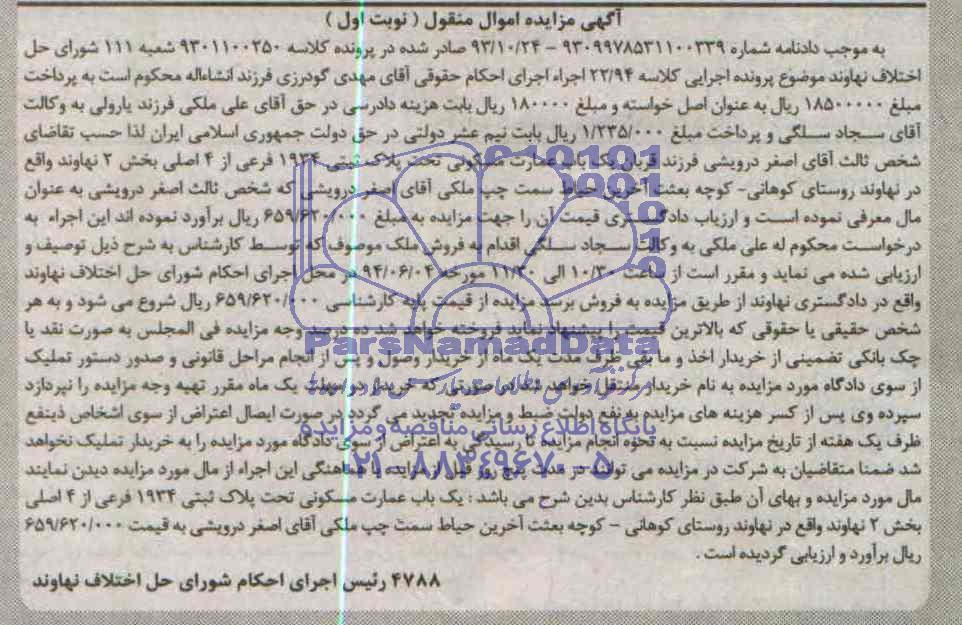 آگهی مزایده اموال منقول ( نوبت اول )
به موجب دادنامه شماره ۹۳۰۹۹۷۸۵۳۱۱۰۰۳۳۹ – ۹۳/۱۰/۲۴ صادر شده در پرونده کلاسه ۹۳۰۱۱۰۰۲۵۰ شعبه ۱۱۱ شورای حل
اختلاف نهاوند موضوع پرونده اجرایی کلاسه ۲۲/۹۴ اجراء اجرای احکام حقوقی آقای مهدی گودرزی فرزند انشاءاله محکوم است به پرداخت
مبلغ ۱۸۵۰۰۰۰۰ ریال به عنوان اصل خواسته و مبلغ ۱۸۰۰۰۰ ریال بابت هزینه دادرسی در حق آقای علی ملکی فرزند یارولی به وکالت
آقای سجاد سلگی و پرداخت مبلغ ۱/۲۳۵/۰۰۰ ریال بابت نیم عشر دولتی در حق دولت جمهوری اسلامی ایران لذا حسب تقاضای
شخص ثالث آقای اصغر درویشی فرزند قربان یک باب عمارت مسکونی تحت پلاک ثبتی ۱۹۳۴ فرعی از ۴ اصلی بخش ۲ نهاوند واقع
در نهاوند روستای کوهانی- کوچه بعثت آخرین حیاط سمت چپ ملکی آقای اصغر درویشی که شخص ثالث اصغر درویشی به عنوان
مال معرفی نموده است و ارزیاب دادگستری قیمت آن را جهت مزایده به مبلغ ۶۵۹/۶۲۰/۰۰۰ ریال برآورد نموده اند این اجراء به
درخواست محکوم له علی ملکی به وکالت سجاد سلگی اقدام به فروش ملک موصوف که توسط کارشناس به شرح ذیل توصیف و
ارزیابی شده می نماید و مقرر است از ساعت ۱۰/۳۰ الی ۱۱/۳۰ مورخه ۹۴/۰۶/۰۴ در محل اجرای احکام شورای حل اختلاف نهاوند
واقع در دادگستری نهاوند از طریق مزایده به فروش برسد مزایده از قیمت پایه کارشناسی ۶۵۹/۶۲۰/۰۰۰ ریال شروع می شود و به هر
شخص حقیقی یا حقوقی که بالاترین قیمت را پیشنهاد نماید فروخته خواهد شد ده درصد وجه مزایده فی المجلس به صورت نقد یا
چک بانکی تضمینی از خریدار اخذ و مابقی ظرف مدت یک ماه از خریدار وصول و پس از انجام مراحل قانونی و صدور دستور تملیک
از سوی دادگاه مورد مزایده به نام خریدار منتقل خواهد شد در صورتی که خریدار در مهلت یک ماه مقرر تهیه وجه مزایده را نپردازد
سپرده وی پس از کسر هزینه های مزایده به نفع دولت ضبط و مزایده تجدید می گردد در صورت ایصال اعتراض از سوی اشخاص ذینفع
ظرف یک هفته از تاریخ مزایده نسبت به نحوه انجام مزایده تا رسیدگی به اعتراض از سوی دادگاه مورد مزایده را به خریدار تملیک نخواهد
شد ضمنا متقاضیان به شرکت در مزایده می توانند در مدت پنج روز قبل از مزایده با هماهنگی این اجراء از مال مورد مزایده دیدن نمایند
مال مورد مزایده و بهای آن طبق نظر کارشناس بدین شرح می باشد : یک باب عمارت مسکونی تحت پلاک ثبتی ۱۹۳۴ فرعی از ۴ اصلی
بخش ۲ نهاوند واقع در نهاوند روستای کوهانی – کوچه بعثت آخرین حیاط سمت چپ ملکی آقای اصغر درویشی به قیمت ۶۵۹/۶۲۰/۰۰۰
ریال برآورد و ارزیابی گردیده است .
۴۷۸۸ رئیس اجرای احکام شورای حل اختلاف نهاوند
ParsNamadData
پایگاه اطلاع رسانی مناقصه و مزایده
۰۲۱-۸۸۳۴۹۶۷۰-۵